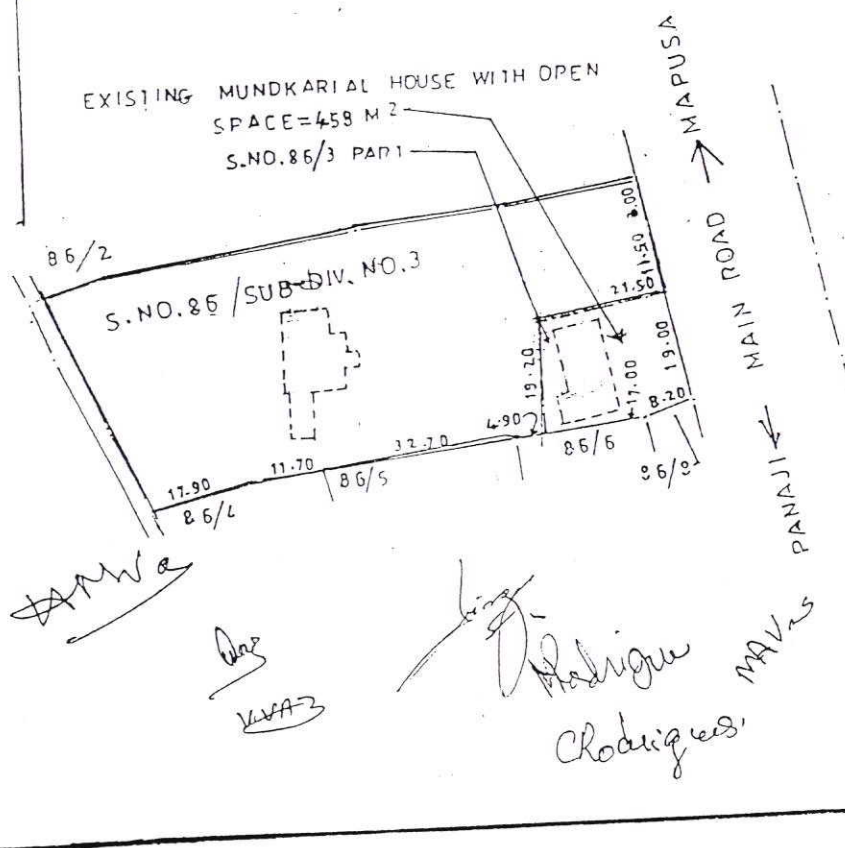 EXISTING MUNDKARIAL HOUSE WITH OPEN
SPACE=459 M2
S.NO.86/3 PART
MAPUSA
MAIN ROAD
PANAJI
86/2
S.NO.86/SUB-DIV. NO.3
3.00
11.50
21.50
19.20
17.00
19.00
8.20
4.90
32.70
11.70
17.90
86/4
86/5
86/6
86/8
Rodrigues
CRodrigues